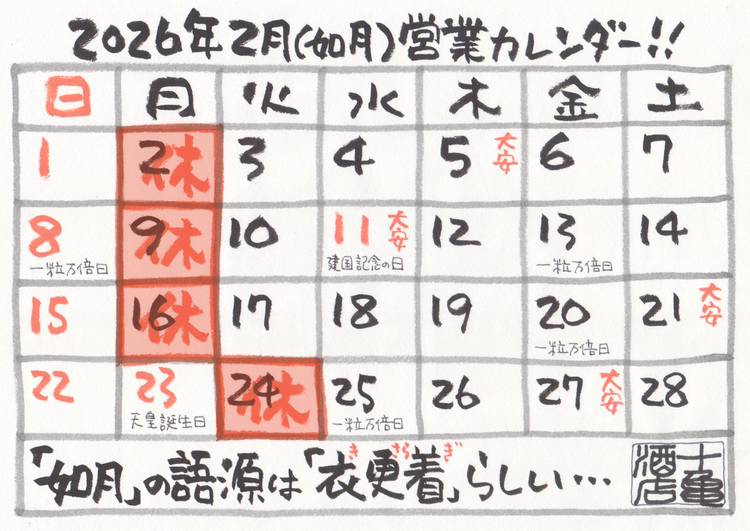 2026年2月(如月)営業カレンダー!!
日 月 火 水 木 金 土
1 2 休 3 4 5 大安 6 7
8 一粒万倍日 9 休 10 11 大安 建国記念の日 12 13 一粒万倍日 14
15 16 休 17 18 19 20 一粒万倍日 21 大安
22 23 天皇誕生日 24 休 25 一粒万倍日 26 27 大安 28
きさらぎ
「如月」の語源は「衣更着」らしい…
十亀
酒店